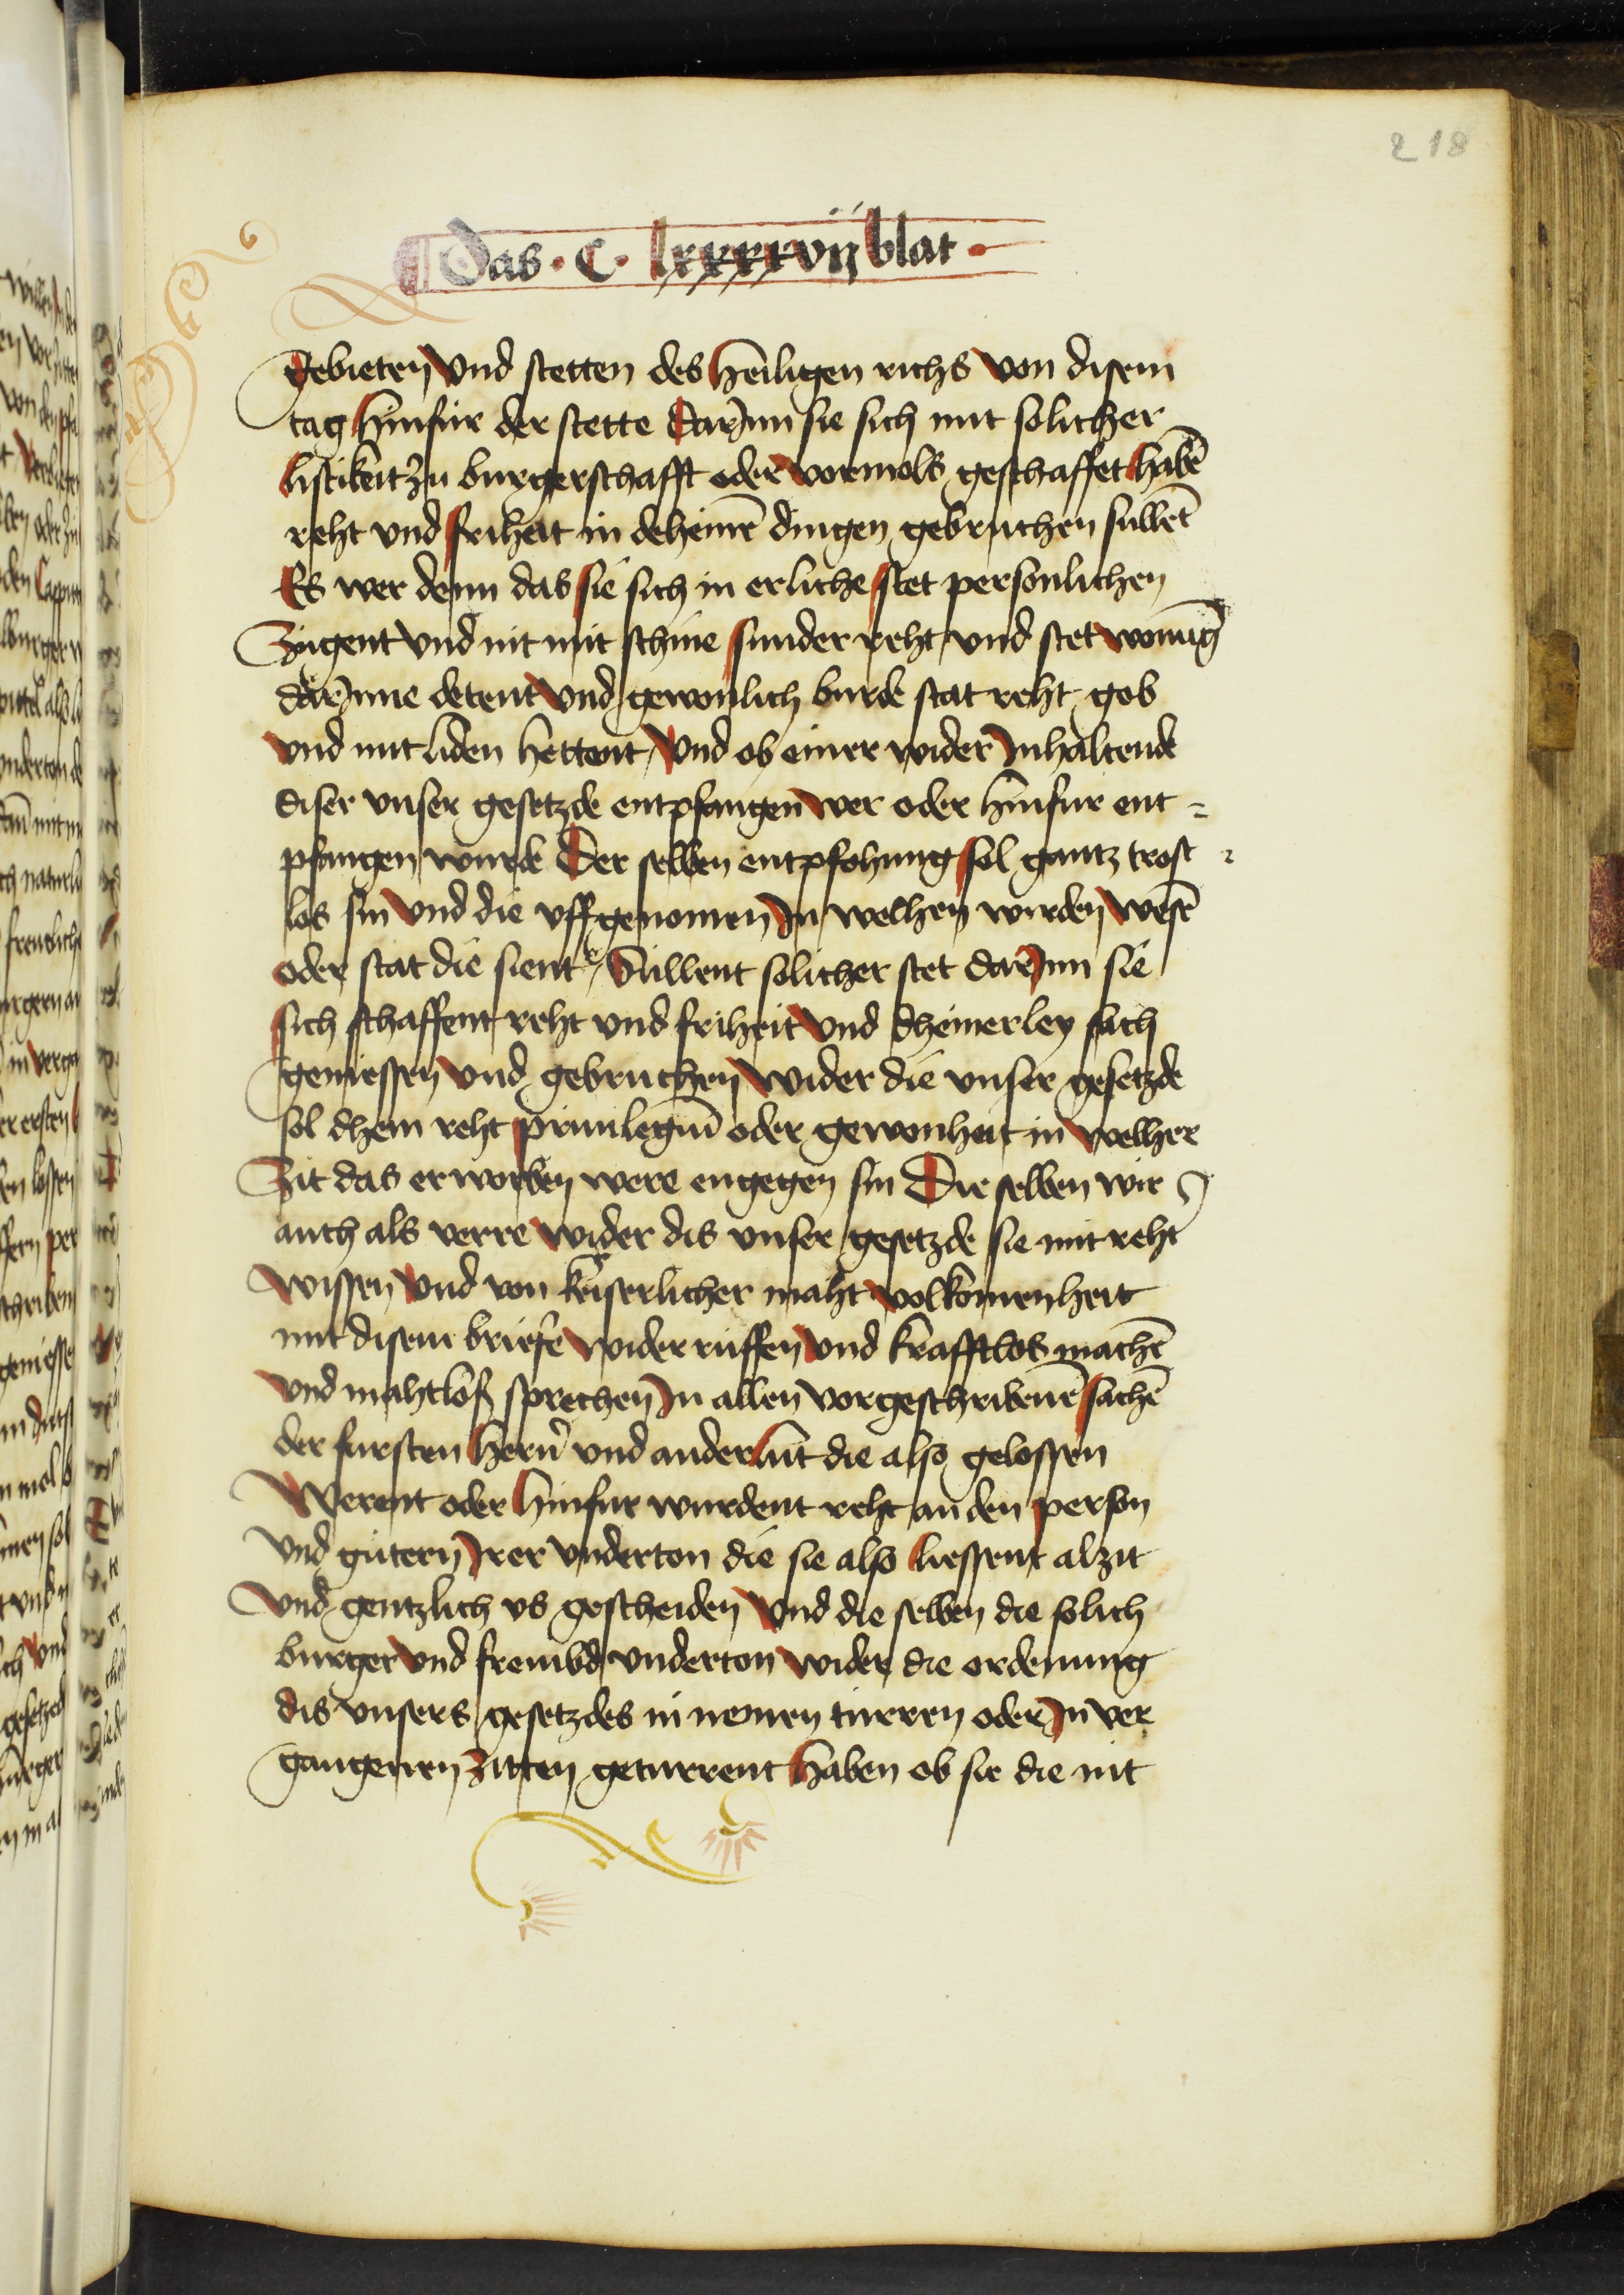 218
Das · C · lxxxxvij blat ·
gebieten vnd stetten des heiligen richs von disem
tag hinfúr der stette dar Inn sie sich mit solicher
listikeit zu burgerschafft oder vormols geschaffet habē
reht vnd friheit in deheinē dingen gebruchen sullēt
Es wer denn das sie sich in erliche stet personlichen
Zúgent vnd nit mit schine sunder reht vnd stet wonūg
dar Inne detent vnd gewonlich burde stat reht gob
vnd mit liden hettent / vnd ob einer wider Inhaltende
diser vnser gesetzde entpfangen wer oder hinfur ent =
pfangen wurde Der selben entpfohung sol gantz trost =
los sin vnd die vffgenomen In welhen wirden wesē
oder stat die sient / Súllent solicher stet dar Inn sie
sich schaffent reht vnd friheit vnd dheinerley sach
geniessen vnd gebruchen wider die vnser gesetzde
sol dhein reht priuilegiū oder gewonheit in welher
Zit das erworben were engegen sin Die selben wir
auch als verre wider dis vnser gesetzde sie mit reht
wissen vnd von keiserlicher maht volkomenheit
mit disem briefe wider rúffen vnd krafftlos machē
vnd mahtloß sprechen In allen vorgeschribenē sachē
der fursten hern vnd ander lút die also gelossen
Werent oder hinfur wurdent reht an den person
vnd gútern Irer vnderton die sie also liessent alzit
vnd gentzlich vs gescheiden vnd die selben die solich
burger vnd frembd vnderton wider die ordenung
dis vnsers gesetzdes in nemen túrren oder In ver
gangenen zitten geturrent haben ob sie die nit